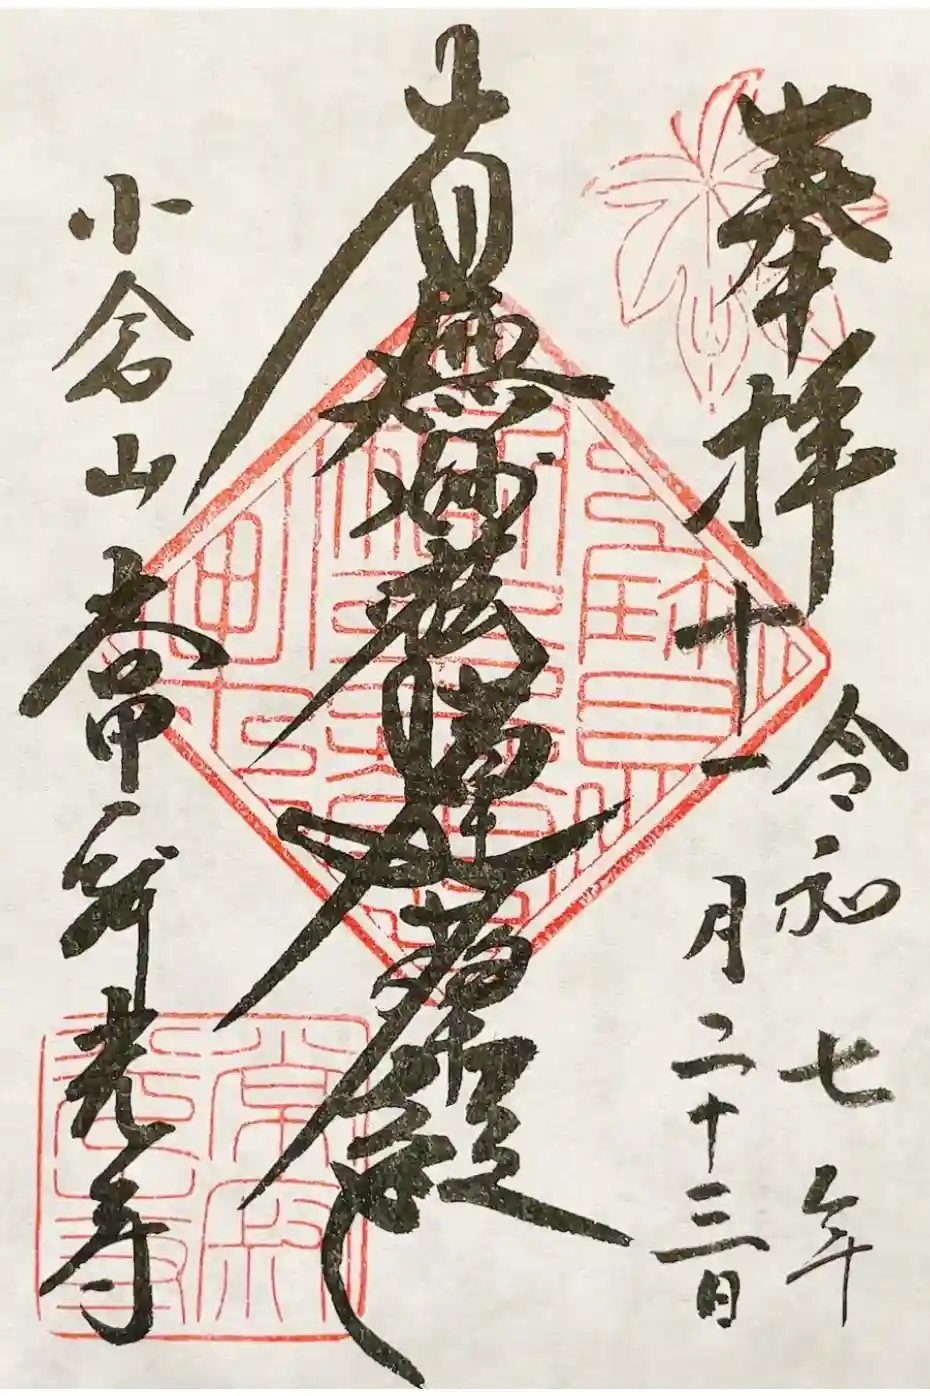 奉拝
令和七年
十一月二十三日
南無妙法蓮華経
小倉山常寂光寺
常寂光寺